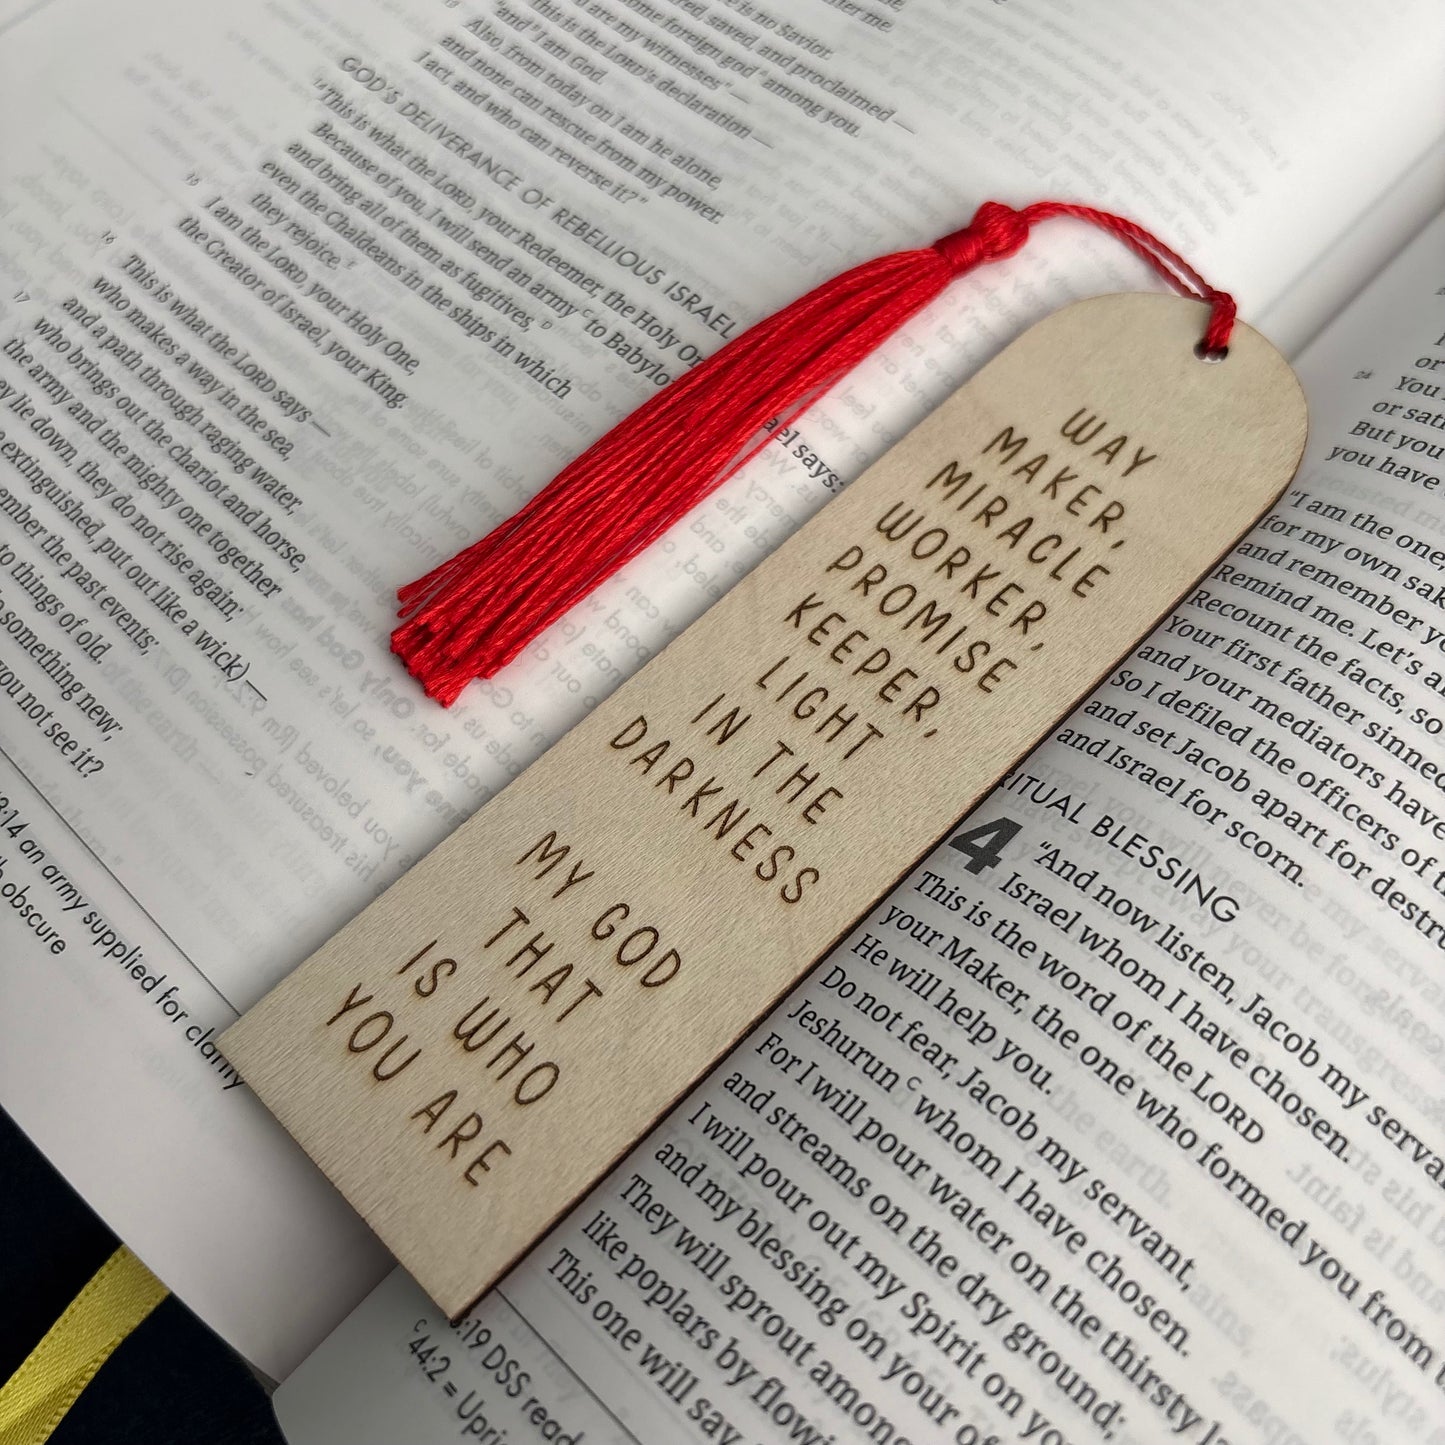 e is no Savior.
red, saved, and proclaimed —
ome foreign god among you.
ou are my witnesses" —
this is the LORD's declaration —
"and I am God.
Also, from today on I am he alone,
and none can rescue from my power.
I act, and who can reverse it?"
GOD'S DELIVERANCE OF REBELLIOUS ISRAEL
14 "This is what the LORD, your Redeemer, the Holy On
ael says:
Because of you, I will send an army C to Babylo
and bring all of them as fugitives, D
even the Chaldeans in the ships in which
they rejoice. E
15 I am the LORD, your Holy One,
the Creator of Israel, your King.
16 This is what the LORD says —
who makes a way in the sea,
and a path through raging water,
17 who brings out the chariot and horse,
the army and the mighty one together
ey lie down, they do not rise again;
extinguished, put out like a wick) —
ember the past events;
to things of old.
o something new;
you not see it?
3:14 an army supplied for clarity
obscure
WAY
MAKER,
MIRACLE
WORKER,
PROMISE
KEEPER,
LIGHT
IN THE
DARKNESS
MY GOD
THAT
IS WHO
YOU ARE
24 You
or sati
But you
you have
"I am the one,
for my own sak
and remember yo
Remind me. Let's a
Recount the facts, so
Your first father sinned
and your mediators have
So I defiled the officers of t
and set Jacob apart for destru
and Israel for scorn.
RITUAL BLESSING
4 "And now listen, Jacob my serva
Israel whom I have chosen.
This is the word of the LORD
your Maker, the one who formed you from t
He will help you.
Do not fear, Jacob my servant,
Jeshurun C whom I have chosen.
For I will pour water on the thirsty la
and streams on the dry ground;
I will pour out my Spirit on yo
and my blessing on your of
They will sprout among
like poplars by flowi
This one will say,
:19 DSS read
C 44:2 = Uprig